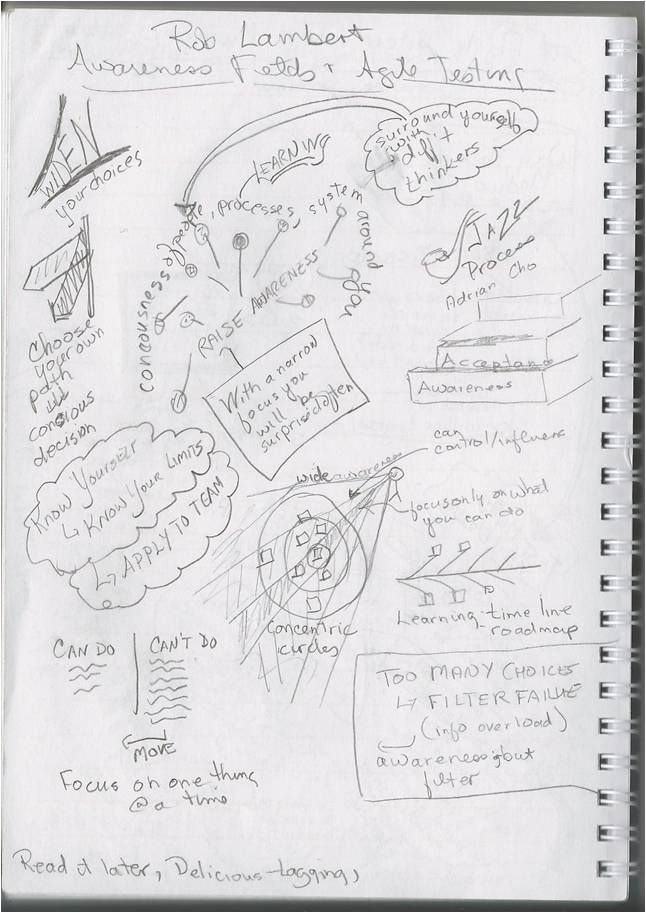 Rob Lambert
Awareness Fields + Agile Testing
WIDEN
your choices
LEARNING
surround yourself
with
diff't
thinkers
conciousness of people, processes, system around you
RAISE AWARENESS
JAZZ
Process
Adrian Cho
Acceptance
Awareness
Choose
your own
path
conscious
decision
With a narrow
focus you
will be
surprised often
KNOW YOURSELF
↳ KNOW YOUR LIMITS
↳ APPLY TO TEAM
wide awareness
can
control/influens
focus only on what
you can do
concentric
circles
Learning time line
- roadmap
CAN DO
CAN'T DO
MOVE
Focus on one thing
@ a time
TOO MANY CHOICES
↳ FILTER FAILUE
(info overload)
awareness but
filter
Read it later, Delicious-tagging,